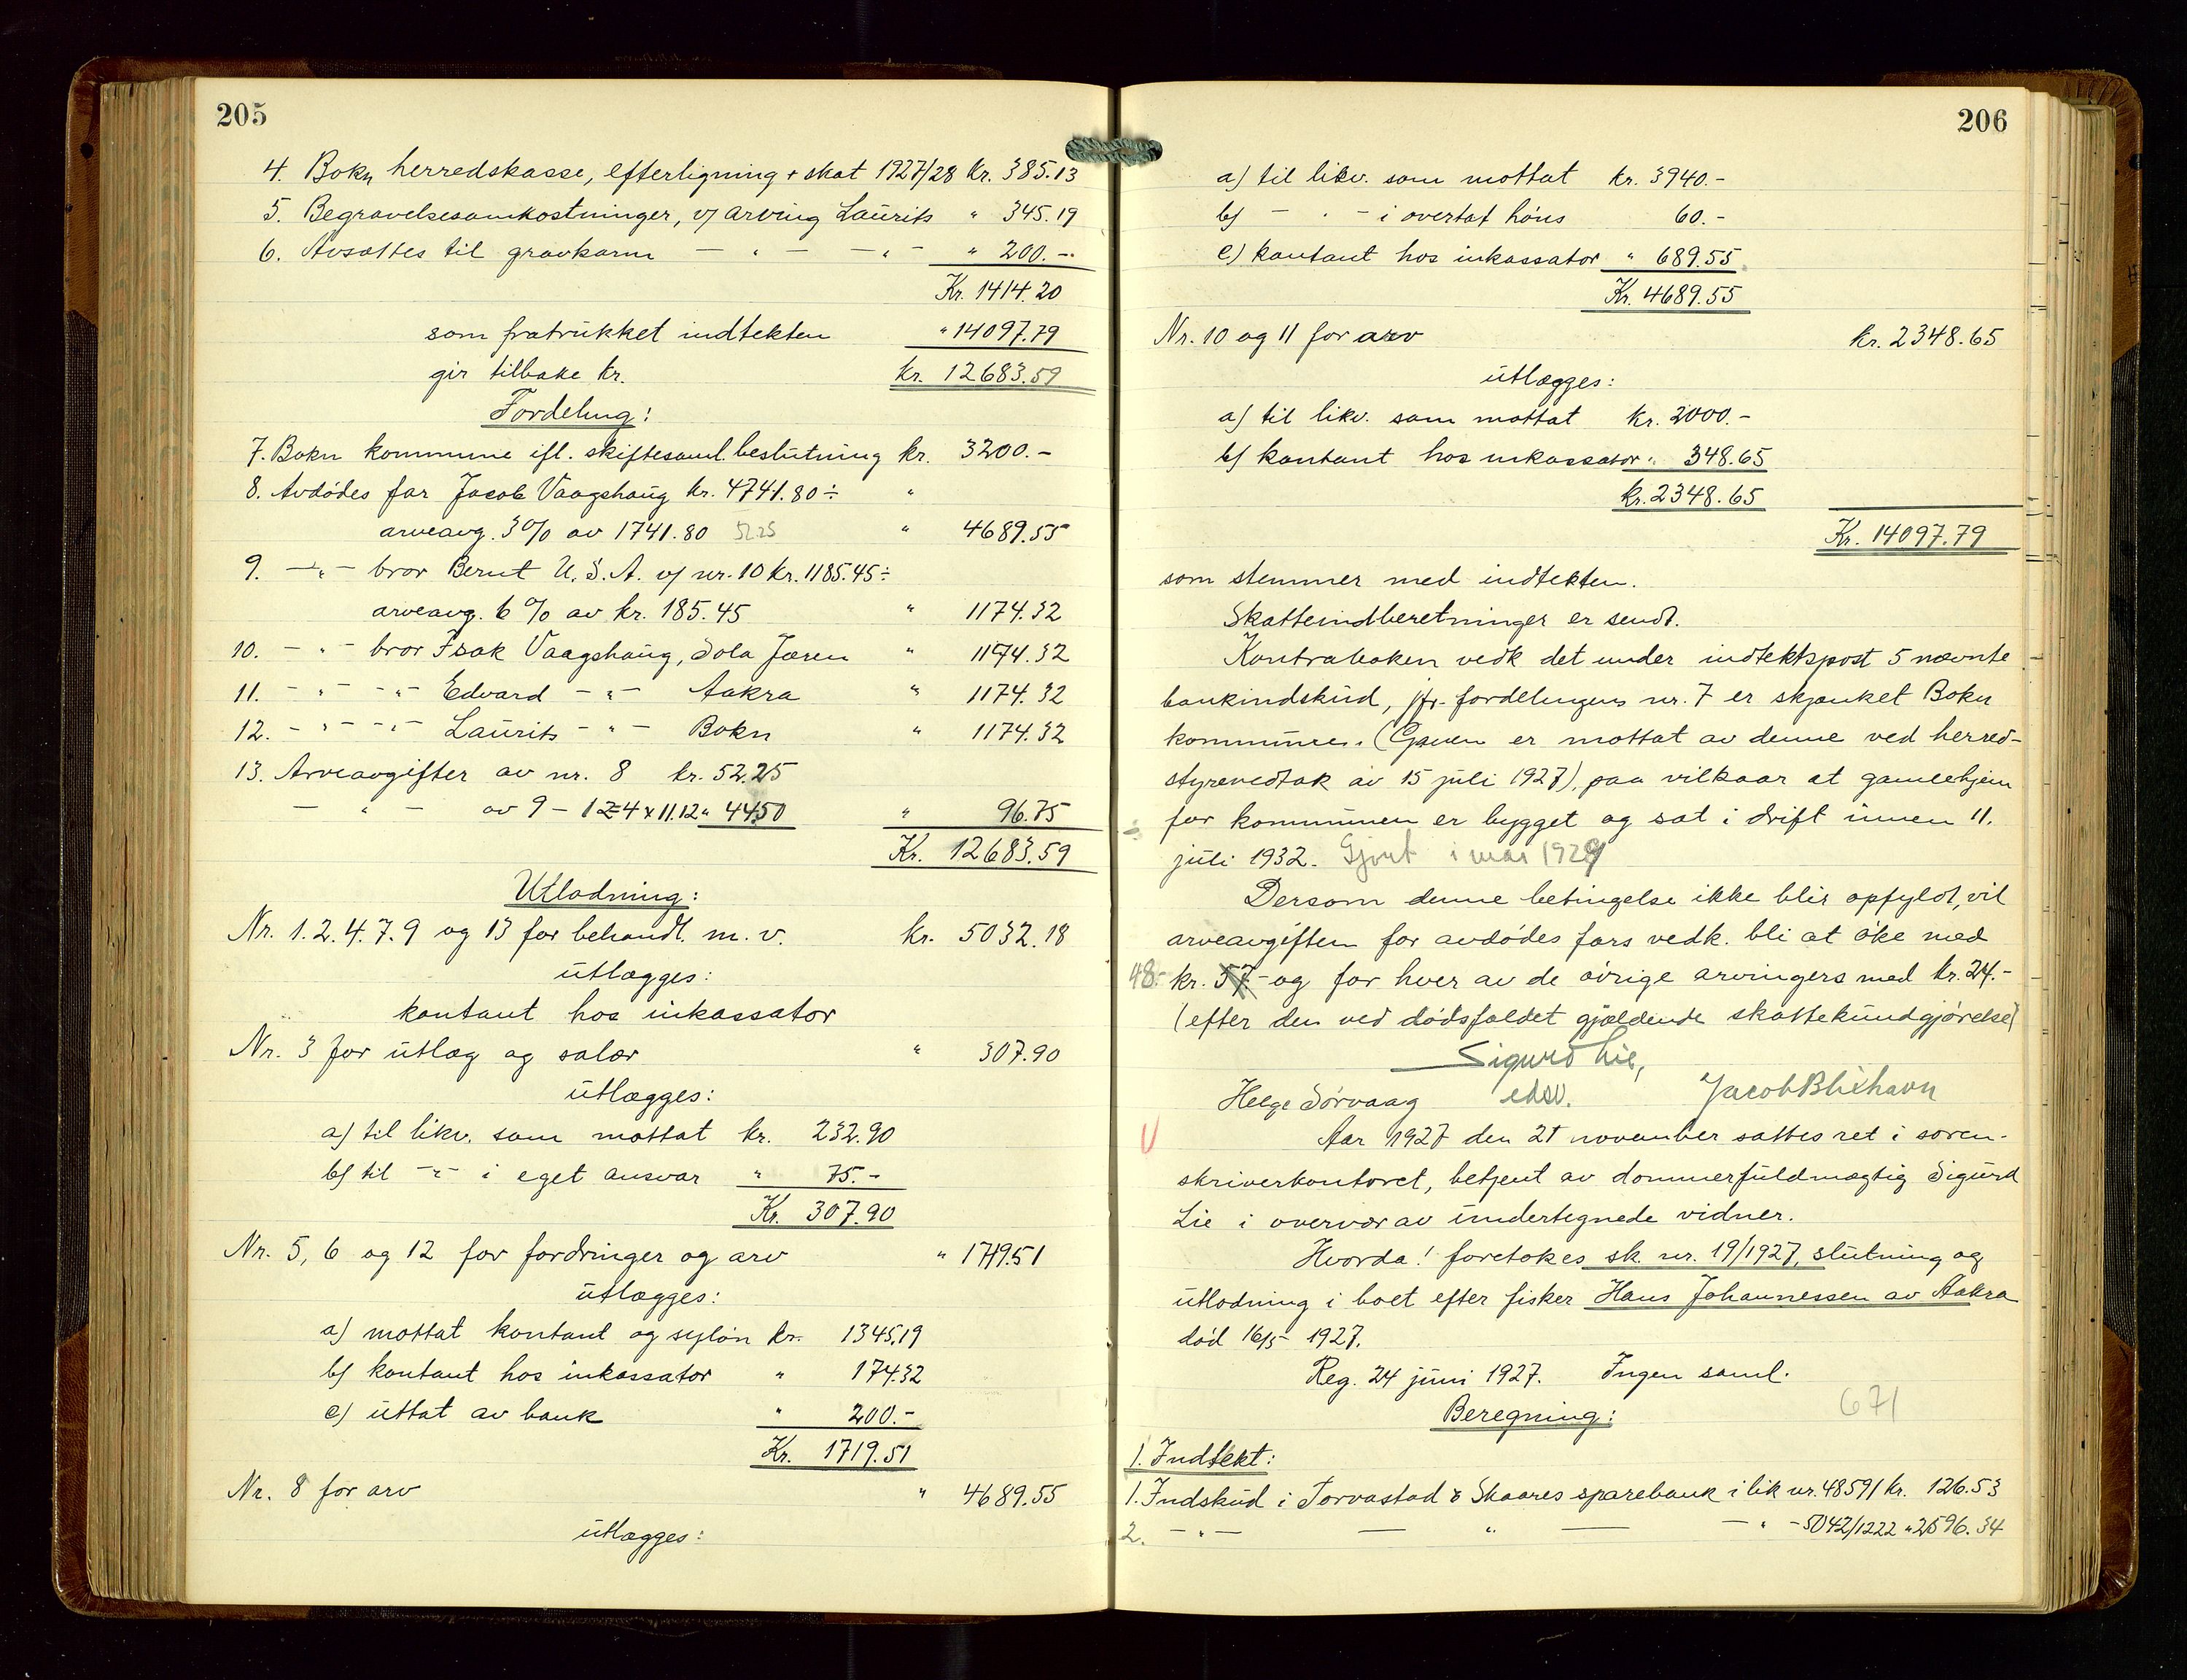 205
4. Bokn herredskasse, efterligning + skat 1927/28 kr. 385.13
5. Begravelsesomkostninger, v/ arving Laurits " 345.19
6. Avsættes til gravkarm — " — — " — " 200.-
Kr. 1414.20
som fratrukket indtekten " 14097.79
gir tilbake kr. kr. 12683.59
Fordeling:
7. Bokn kommune ifl. skiftesaml. beslutning kr. 3200.-
8. Avdødes far Jacob Vaagshaug kr. 4741.80 ÷ "
arveavg. 3% av 1741.80 52.25 " 4689.55
9. — " — bror Bernt U.S.A. v/ nr. 10 kr. 1185.45 ÷
arveavg. 6% av kr. 185.45 " 1174.32
10. — " — bror Isak Vaagshaug, Sola Jæren " 1174.32
11. — " — — " — Edvard — " — Aakra " 1174.32
12. — " — — " — Laurits — " — Bokn " 1174.32
13. Arveavgifter av nr. 8 kr. 52.25
— " — av 9 - 12 4 x 11.12 " 44.50 " 96.75
Kr. 12683.59
Utlodning:
Nr. 1.2.4.7.9 og 13 for behandl. m.v. kr. 5032.18
utlægges:
kontant hos inkassator
Nr. 3 for utlæg og salær " 307.90
utlægges:
a) til likv. som mottat kr. 232.90
b) til — " — i eget ansvar " 75.-
Kr. 307.90
Nr. 5, 6 og 12 for fordringer og arv " 1719.51
utlægges:
a) mottat kontant og syløn kr. 1345.19
b) kontant hos inkassator " 174.32
c) uttat av bank " 200.-
Kr. 1719.51
Nr. 8 for arv " 4689.55
utlægges:
206
a) til likv. som mottat kr. 3940.-
b) — " — i overtat høns 60.-
c) kontant hos inkassator " 689.55
Kr. 4689.55
Nr. 10 og 11 for arv kr. 2348.65
utlægges:
a) til likv. som mottat kr. 2000.-
b) kontant hos inkassator " 348.65
kr. 2348.65
Kr. 14097.79
som stemmer med indtekten.
Skatteindberetninger er sendt.
Kontraboken vedk det under indtektspost 5 nævnte
bankindskud, jfr. fordelingens nr. 7 er skjænket Bokn
kommune. (Gaven er mottat av denne ved herred-
styrevedtak av 15 juli 1927), paa vilkaar at gamlehjem
for kommunen er bygget og sat i drift innen 11.
juli 1932. Gjort i mai 1929
Dersom denne betingelse ikke blir opfyldt, vil
arveavgiften for avdødes fars vedk. bli at øke med
48.- kr. 57.- og for hver av de øvrige arvingers med kr. 24.-
(efter den ved dødsfaldet gjældende skattekundgjørelse)
Sigurd Lie,
edsv.
Helge Sørvaag Jacob Blixhavn
Aar 1927 den 21 november sattes ret i soren-
skriverkontoret, betjent av dommerfuldmægtig Sigurd
Lie i overvær av undertegnede vidner.
Hvorda! foretokes sk. nr. 19/1927, slutning og
utlodning i boet efter fisker Hans Johannessen av Aakra
død 16/5 1927.
Reg. 24 juni 1927. Ingen saml.
Beregning: 671
1. Indtekt:
1. Indskud i Torvastad & Skaares sparebank i lik nr. 48591 kr. 126.53
2. — " — — " — — " - 5042/1222 " 2596.34